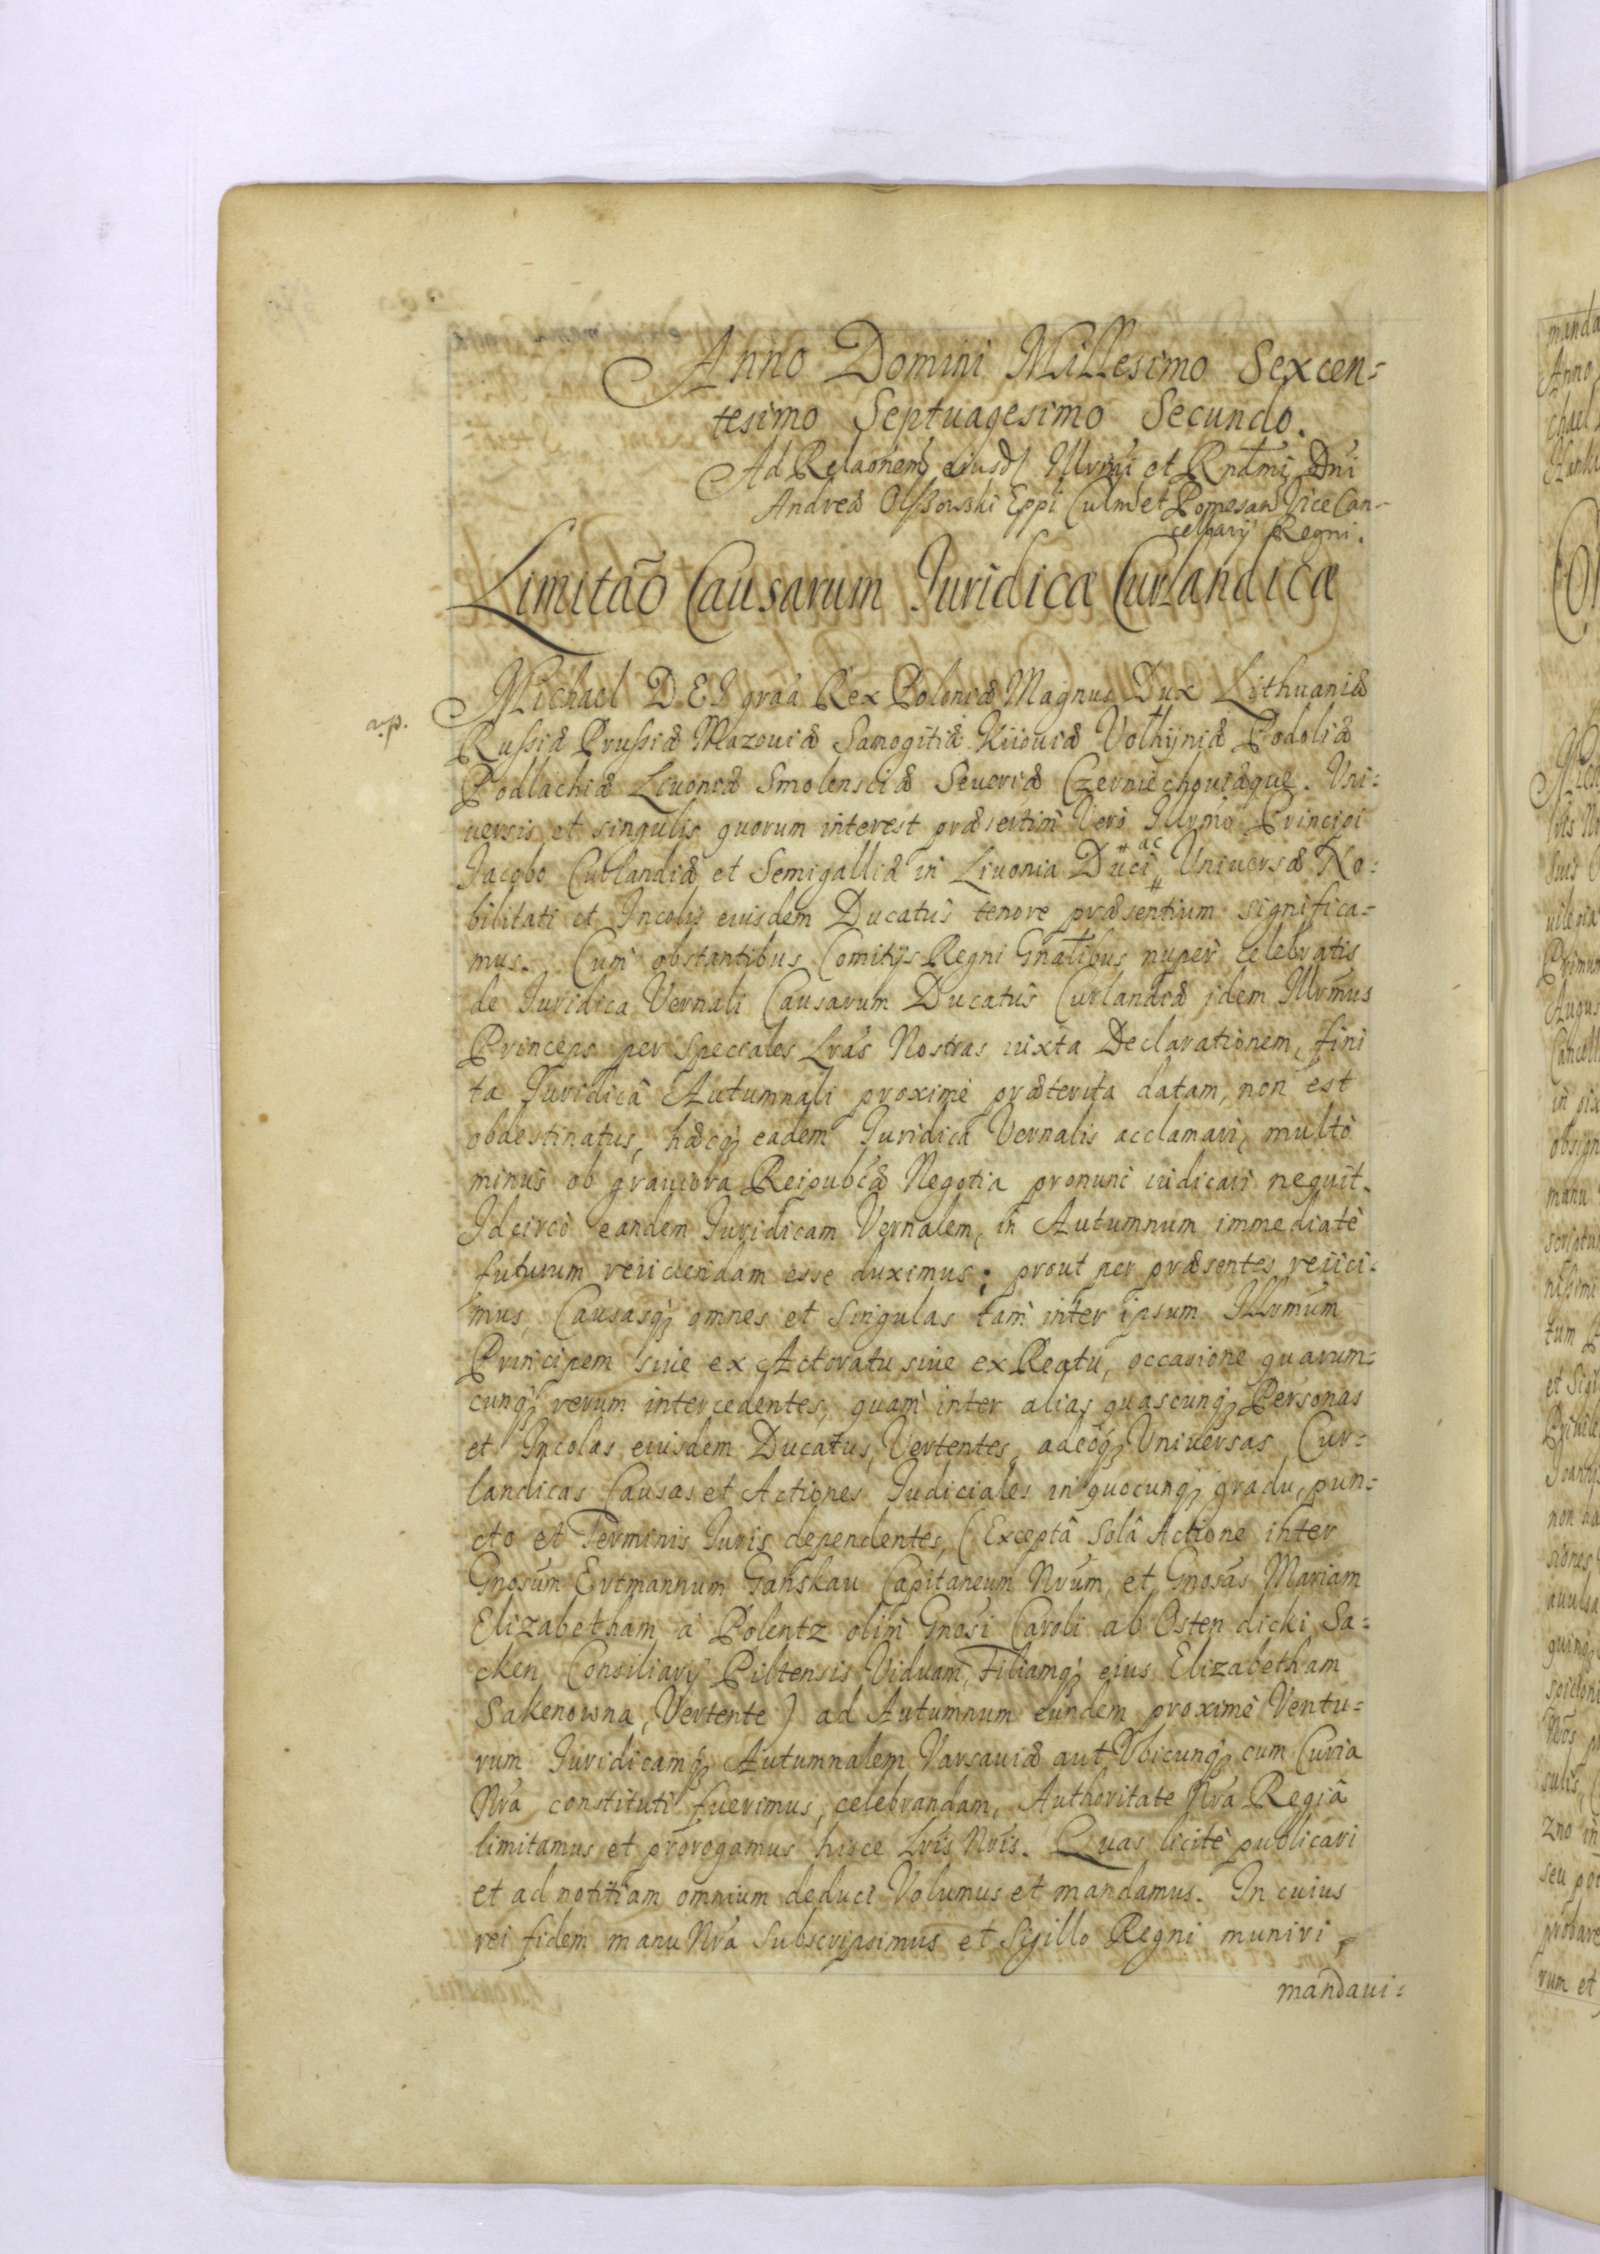 Anno Domini Millesimo Sexcen=
tesimo Septuagesimo Secundo.
Ad Relãonem eiusd Illrmi et Rndmi Dni
Andreæ Olßowski Eppi Culm et Pomesan Vice Can-
cellarij Regni.
Limitão Causarum Juridicæ Curlandicæ
Michael DEI graã Rex Poloniæ Magnus Dux Lithuaniæ
Rußiæ Prußiæ Mazouiæ Samogitiæ Kiiouiæ Volhijniæ Podoliæ
Podlachiæ Liuoniæ Smolensciæ Seueriæ Czerniechouiæque. Vni=
uersis et singulis quorum interest præsertim Vero Illrmo Principi
Jacobo Curlandiæ et Semigalliæ in Liuonia Duci, ac Vniuersæ No=
bilitati et Incolis eiusdem Ducatus tenore præsentium significa=
mus. Cum obstantibus Comitijs Regni Gnalibus nuper celebratis
de Juridica Vernali Causarum Ducatus Curlandiæ idem Illrmus
Princeps per speciales Lrãs Nostras iuxta Declarationem, fini
ta Juridicâ Autumnali proximè præterita datam, non est
obdestinatus, hæcq eadem Juridica Vernalis acclamari, multò
minùs ob grauiora Reipubcæ Negotia pronunc iudicari nequit.
Idcircò eandem Juridicam Vernalem, in Autumnum immediatè
futurum reiiciendam esse duximus; prout per præsentes reiici=
mus, Causasq omnes et singulas tam inter ipsum Illrmum
Principem siue ex Actoratu siue ex Reatu, occasione quarum=
cunq rerum intercedentes, quam inter alias quascunq Personas
et Incolas eiusdem Ducatus, Vertentes, adeoq Vniuersas Cur=
landicas Causas et Actiones Judiciales in quocunq gradu, pun=
cto et Terminis Juris dependentes, (Exceptâ Solâ Actione inter
Gnosum Ertmannum Ganskau Capitaneum Nrum, et Gnosas Mariam
Elizabetham à Polentz olim Gnosi Caroli ab Osten dicki Sa=
cken Consiliarij Piltensis Viduam, Filiamq eius Elizabetham
Sakenowna, Vertente) ad Autumnum eundem proximè Ventu=
rum Juridicamq Autumnalem Varsauiæ aut Vbicunq cum Curia
Nrã constituti fuerimus, celebrandam, Authoritate Nrã Regiâ
limitamus et prorogamus hisce Lris Nris. Quas licitè publicari
et ad notitiam omnium deduci Volumus et mandamus. In cuius
rei fidem manu Nrã Subscripsimus et Sigillo Regni muniri
mandaui=